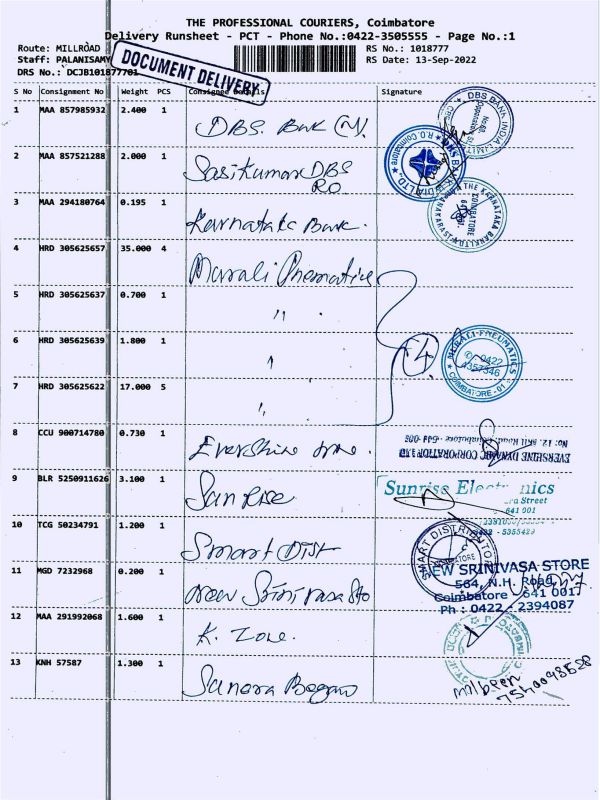 THE PROFESSIONAL COURIERS, Coimbatore
Delivery Runsheet - PCT - Phone No.:0422-3505555 - Page No.:1
Route: MILLROAD
RS No.: 1018777
Staff: PALANISAMY
RS Date: 13-Sep-2022
DRS No.: DCJB101877701
DOCUMENT DELIVERY
S No Consignment No Weight PCS Consignee Details Signature
1 MAA 857985932 2.400 1 DBS. Bank (N).
DBS BANK INDIA
2 MAA 857521288 2.000 1 Sasikumar DBS
RO
R.O. Coimbatore
3 MAA 294180764 0.195 1 Karnataka Bank.
THE KARNATAKA BANK LTD
COIMBATORE
4 HRD 305625657 35.000 4 Murali Pnematice
5 HRD 305625637 0.700 1 "
6 HRD 305625639 1.800 1 "
7 HRD 305625622 17.000 5 "
4
MURALI-PNEUMATICS
0422
4357346
COIMBATORE - 01
8 CCU 900714780 0.730 1 Evershine
EVERSHINE DYNAMIC CORPORATION
9 BLR 5250911626 3.100 1 Sunrise
Sunrise Electronics
641 001
5355429
10 TCG 50234791 1.200 1 Smart Dist
SMART DISTRIBUTO
COIMBATORE
11 MGD 7232968 0.200 1 New Srinivasa Sto
NEW SRINIVASA STORE
564, N.H. Road,
Coimbatore - 641 001
Ph : 0422 - 2394087
12 MAA 291992068 1.600 1 K. Zone.
13 KNH 57587 1.300 1